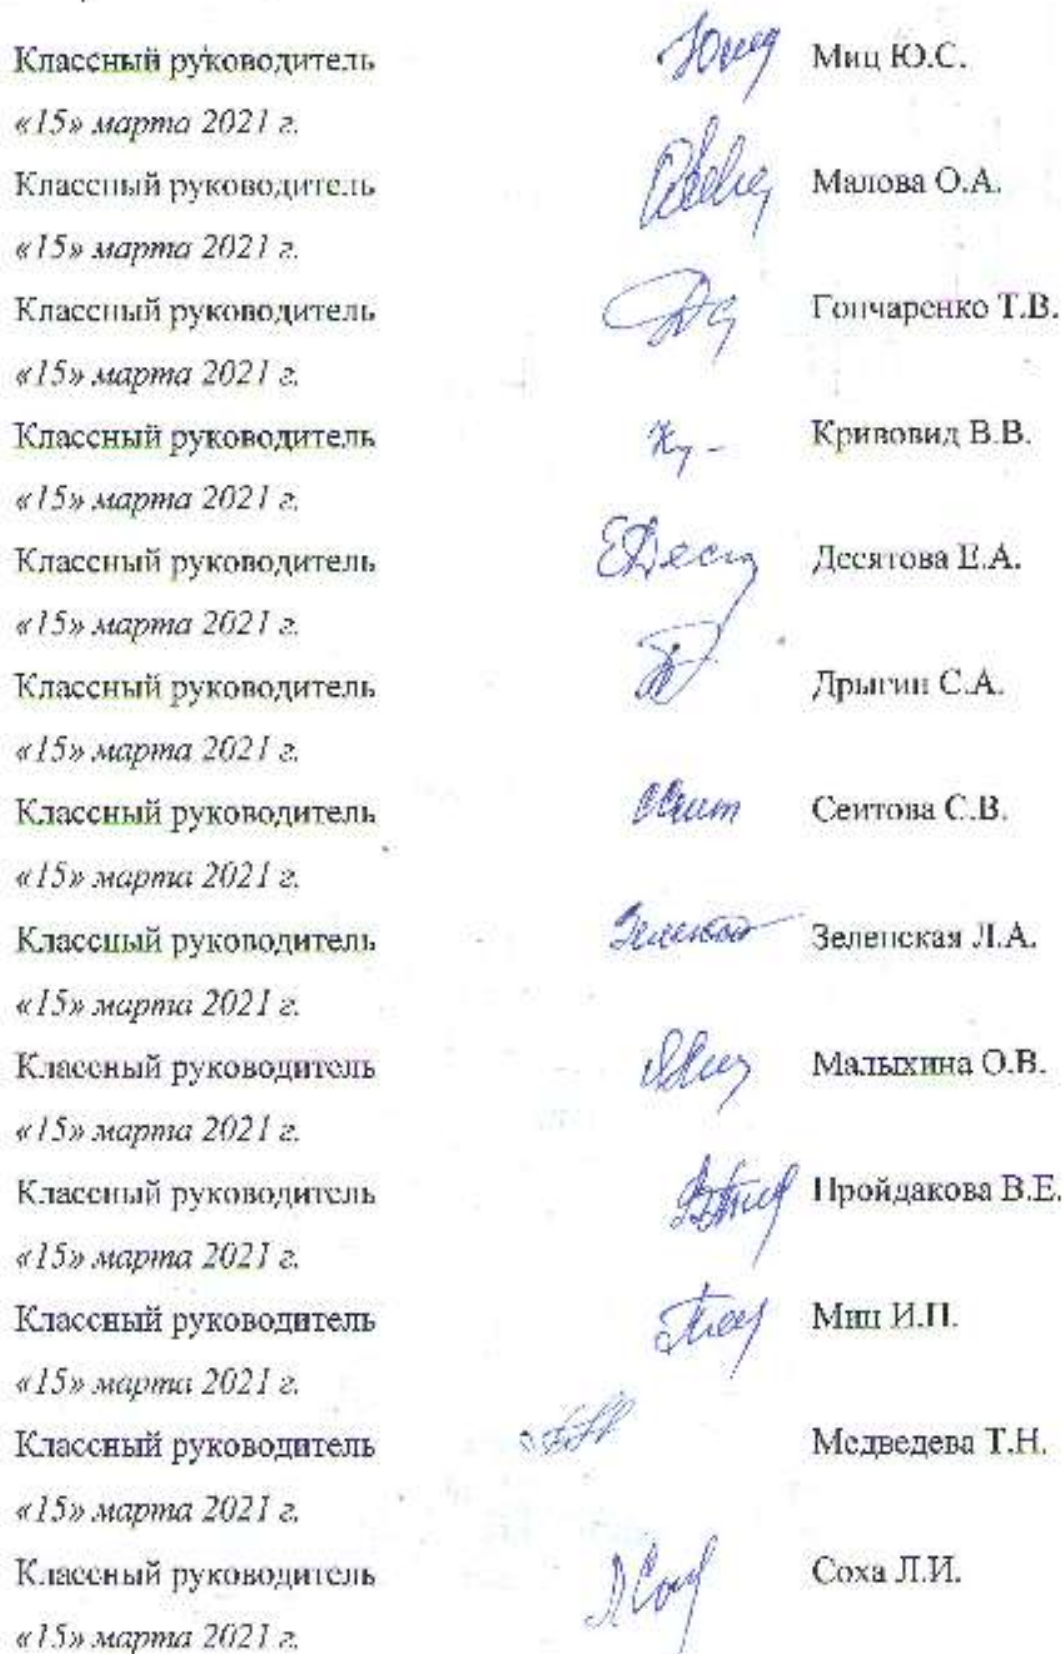 Классный руководитель Миц Ю.С.
«15» марта 2021 г.
Классный руководитель Малова О.А.
«15» марта 2021 г.
Классный руководитель Гончаренко Т.В.
«15» марта 2021 г.
Классный руководитель Кривовид В.В.
«15» марта 2021 г.
Классный руководитель Десятова Е.А.
«15» марта 2021 г.
Классный руководитель Дрыгин С.А.
«15» марта 2021 г.
Классный руководитель Сеитова С.В.
«15» марта 2021 г.
Классный руководитель Зеленская Л.А.
«15» марта 2021 г.
Классный руководитель Малыхина О.В.
«15» марта 2021 г.
Классный руководитель Пройдакова В.Е.
«15» марта 2021 г.
Классный руководитель Миц И.П.
«15» марта 2021 г.
Классный руководитель Медведева Т.Н.
«15» марта 2021 г.
Классный руководитель Соха Л.И.
«15» марта 2021 г.